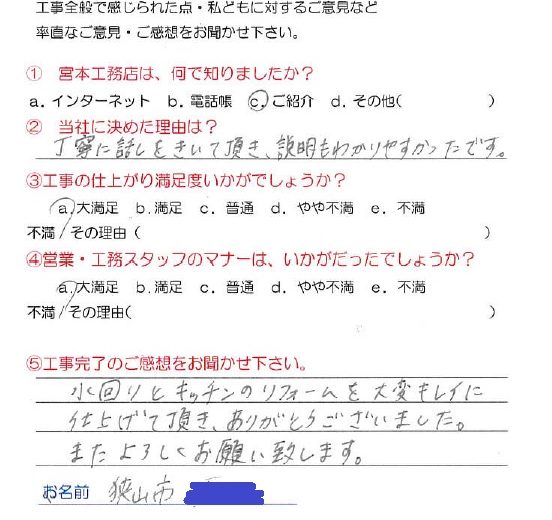 工事全般で感じられた点・私どもに対するご意見など
率直なご意見・ご感想をお聞かせ下さい。
① 宮本工務店は、何で知りましたか?
a. インターネット b. 電話帳 c. ご紹介 d. その他( )
② 当社に決めた理由は?
丁寧に話しをきいて頂き、説明もわかりやすかったです。
③工事の仕上がり満足度いかがでしょうか?
a. 大満足 b. 満足 c. 普通 d. やや不満 e. 不満
不満/その理由( )
④営業・工務スタッフのマナーは、いかがだったでしょうか?
a. 大満足 b. 満足 c. 普通 d. やや不満 e. 不満
不満/その理由( )
⑤工事完了のご感想をお聞かせ下さい。
水回りとキッチンのリフォームを大変キレイに
仕上げて頂き、ありがとうございました。
またよろしくお願い致します。
お名前 狭山市